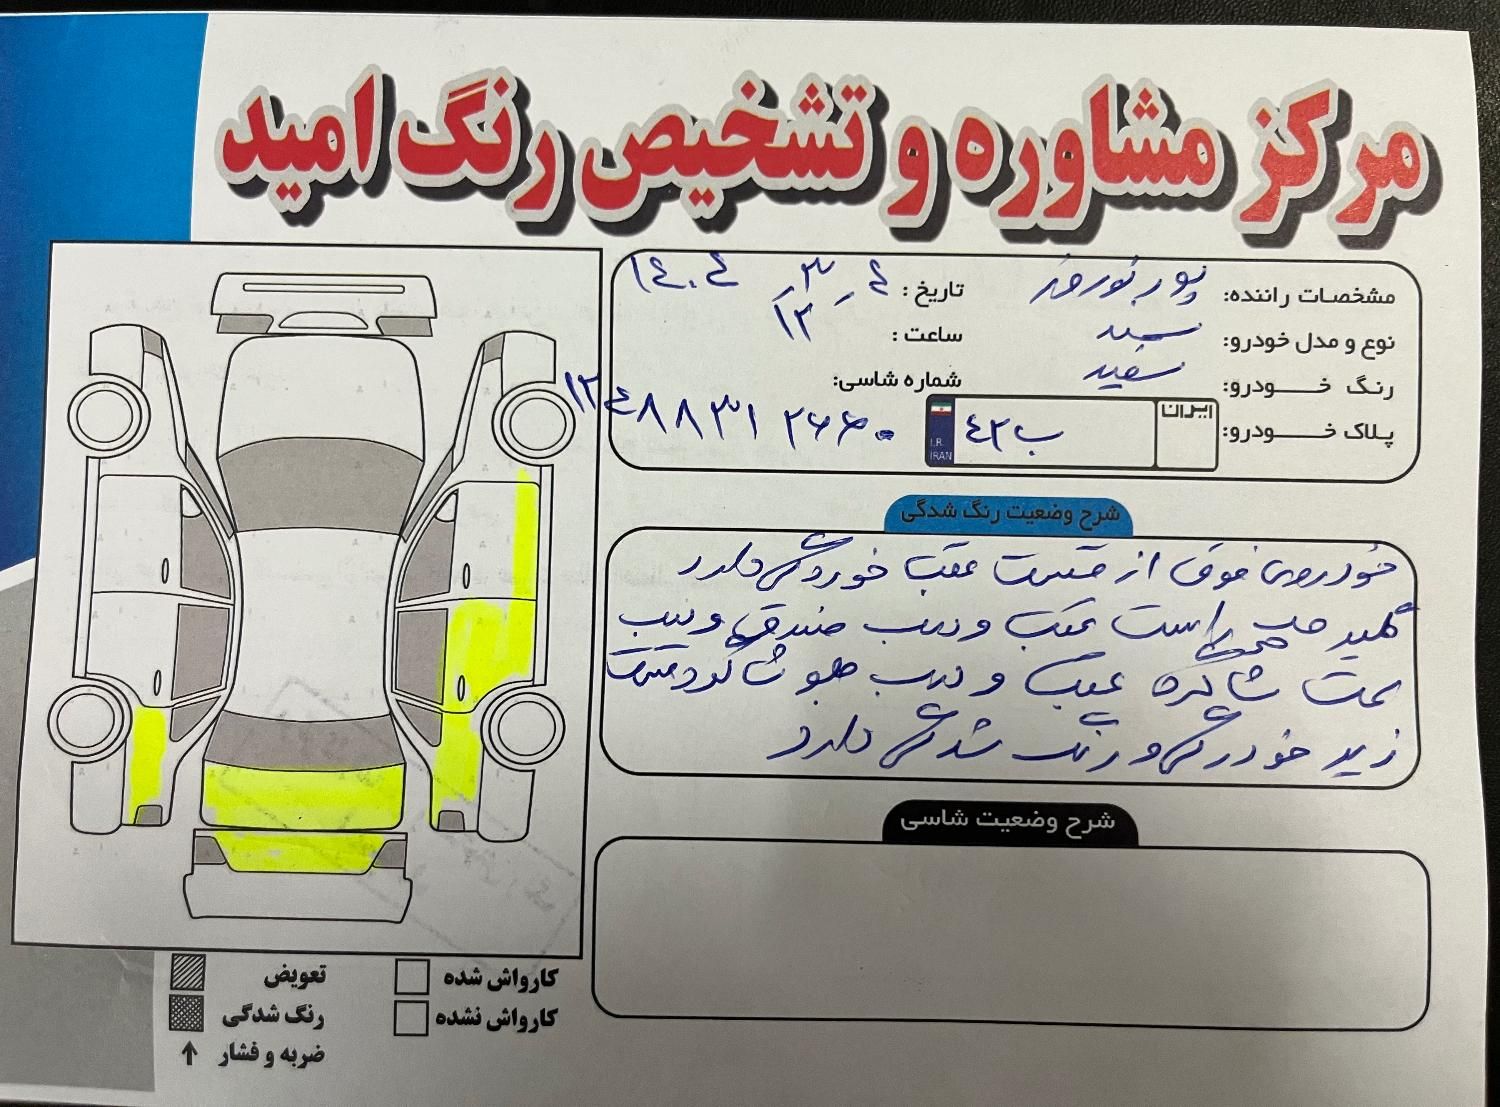 مرکز مشاوره و تشخیص رنگ امید
مشخصات راننده: پورنورمند
تاریخ: ۴ - ۳ - ۱۴۰۴
نوع و مدل خودرو: سمند
ساعت: ۱۳
رنگ خودرو: سفید
شماره شاسی:
پلاک خودرو:
ایران
ب ۴۳
I.R.
IRAN
شرح وضعیت رنگ شدگی
خودروی فوق از قسمت عقب خوردگی دارد
گلگیر راست عقب و درب صندوق و درب
سمت شاگرد عقب و درب جلو شاگرد قسمت
زیر خوردگی و رنگ شدگی دارد
شرح وضعیت شاسی
کارواش شده
تعویض
کارواش نشده
رنگ شدگی
ضربه و فشار